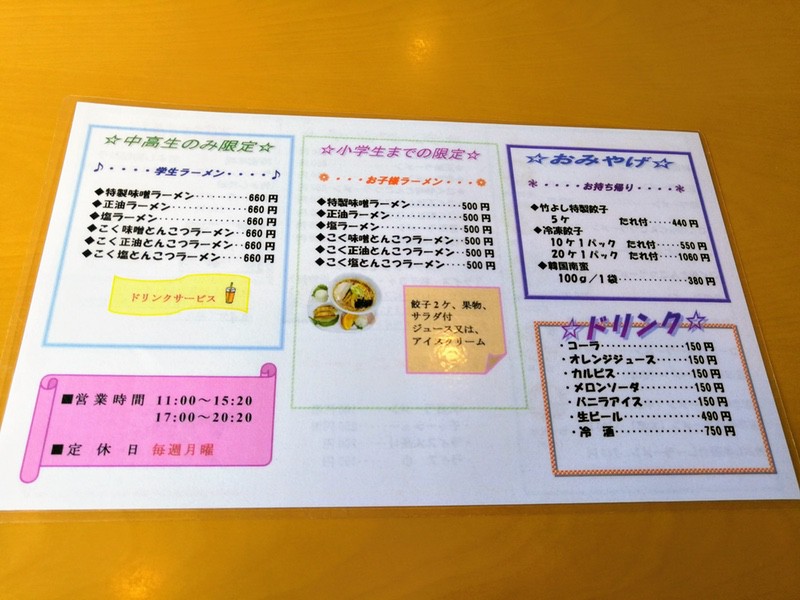 ☆中高生のみ限定☆
♪・・・・学生ラーメン・・・・♪
◆特製味噌ラーメン・・・・・・・・・・660円
◆正油ラーメン・・・・・・・・・・・・・・660円
◆塩ラーメン・・・・・・・・・・・・・・・・660円
◆こく味噌とんこつラーメン・・・・660円
◆こく正油とんこつラーメン・・・・660円
◆こく塩とんこつラーメン・・・・・・660円
ドリンクサービス
■営業時間 11:00～15:20
17:00～20:20
■定休日 毎週月曜
☆小学生までの限定☆
・・・・お子様ラーメン・・・
◆特製味噌ラーメン・・・・・・・・・・500円
◆正油ラーメン・・・・・・・・・・・・・・500円
◆塩ラーメン・・・・・・・・・・・・・・・・500円
◆こく味噌とんこつラーメン・・・・500円
◆こく正油とんこつラーメン・・・・500円
◆こく塩とんこつラーメン・・・・・・500円
餃子2ケ、果物、
サラダ付
ジュース又は、
アイスクリーム
☆おみやげ☆
＊・・・・・お持ち帰り・・・・・＊
◆竹よし特製餃子
5ケ たれ付・・・・・440円
◆冷凍餃子
10ケ1パック たれ付・・・・・550円
20ケ1パック たれ付・・・・・1060円
◆韓国南蛮
100g／1袋・・・・・・・・・・・・・・380円
☆ドリンク☆
・コーラ・・・・・・・・・・・・・・・・150円
・オレンジジュース・・・・・・150円
・カルピス・・・・・・・・・・・・・・150円
・メロンソーダ・・・・・・・・・・150円
・バニラアイス・・・・・・・・・・150円
・生ビール・・・・・・・・・・・・・・490円
・冷 酒・・・・・・・・・・・・・・・・750円